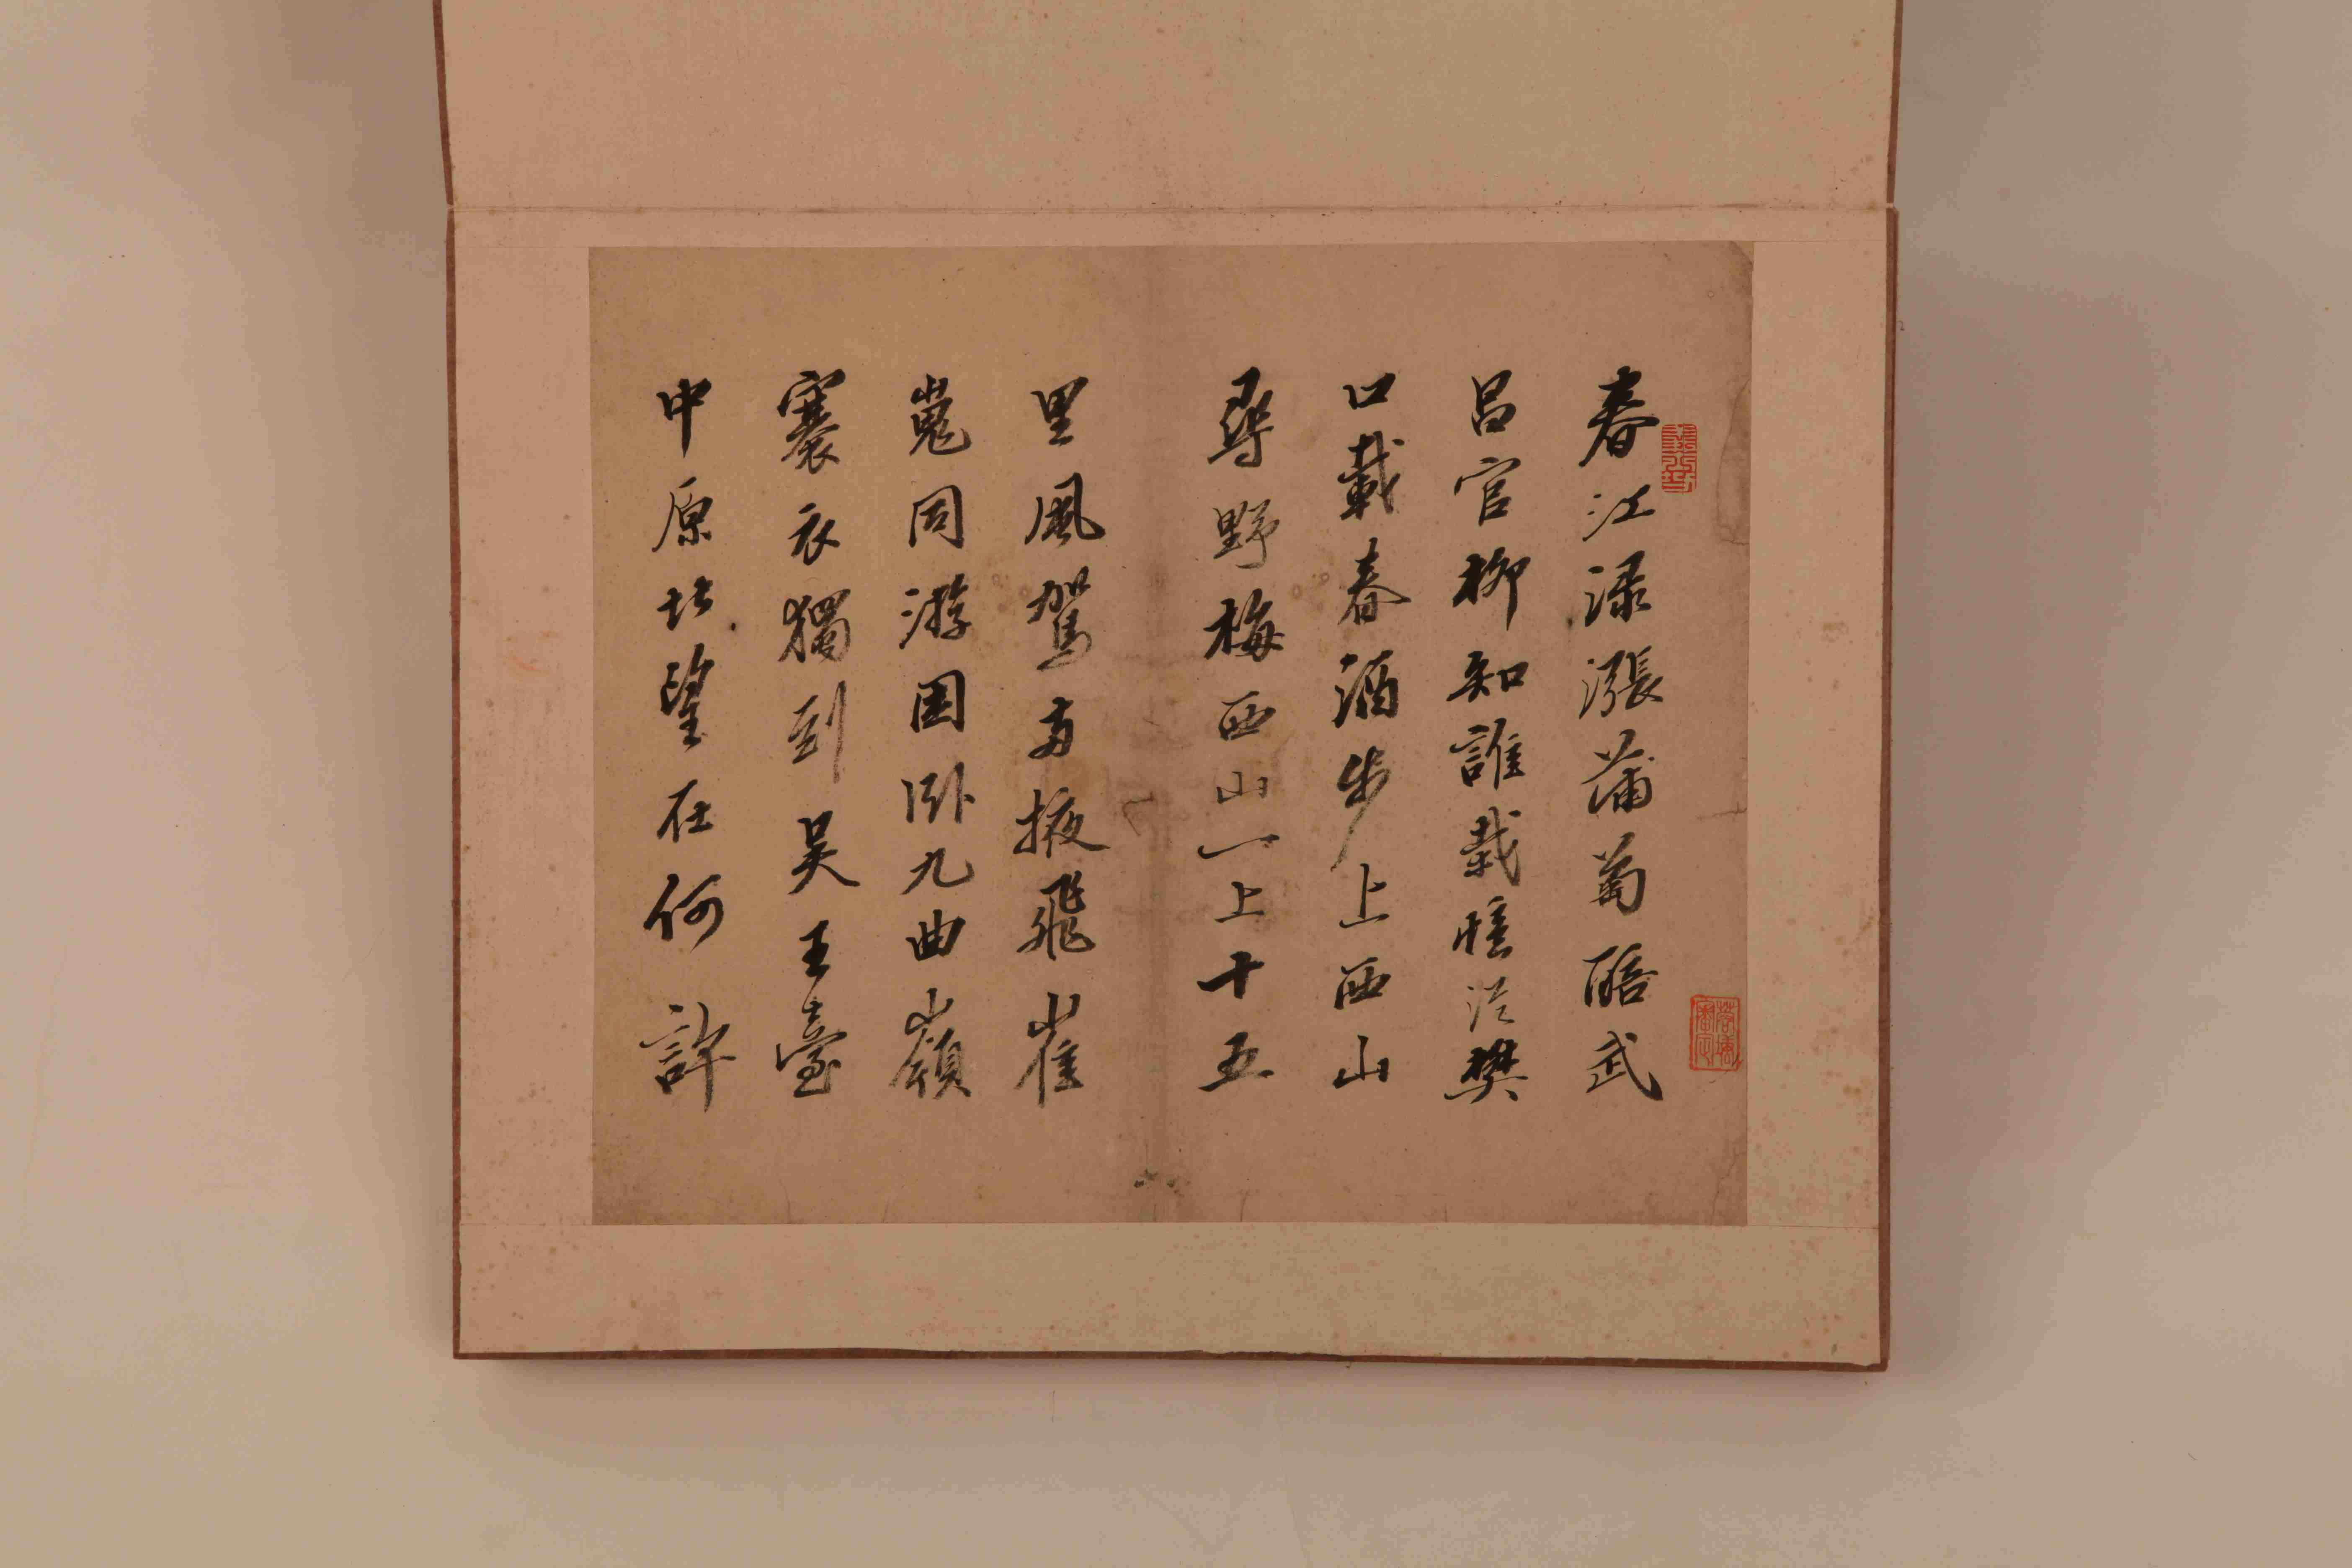 春江渌漲蒲萄醅武
昌官柳知誰栽憶從樊
口載春酒步上西山
尋野梅西山一上十五
里風駕兩掖飛崔
嵬同游困卧九曲嶺
褰衣獨到吳王臺
中原北望在何許